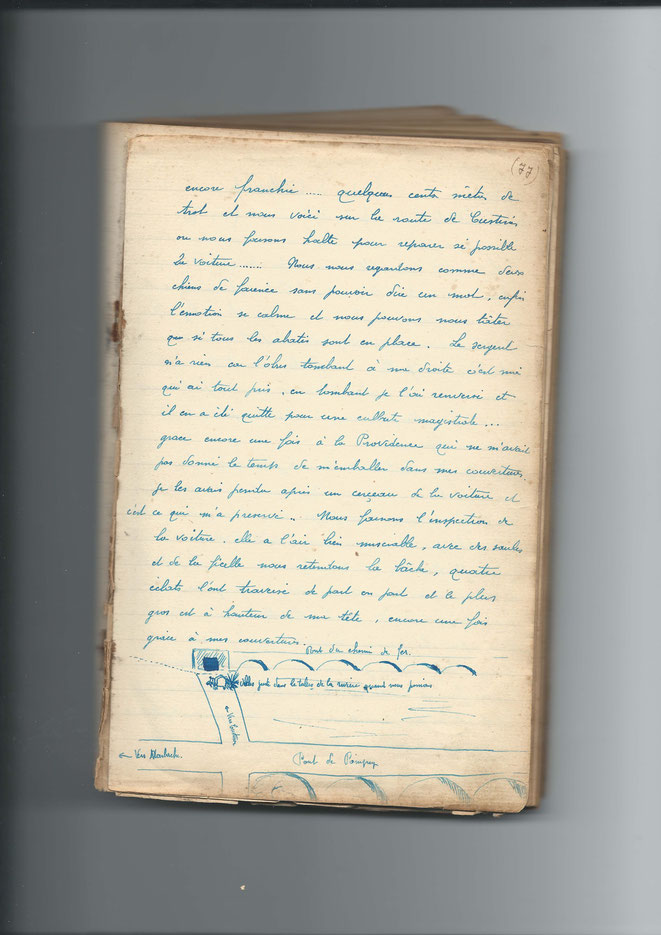 (77)
encore franchie ..... quelques cents mètres de
trot et nous voici sur la route de Custines
ou nous faisons halte pour reparer si possible
la voiture ....... Nous nous regardons comme deux
chiens de faience sans pouvoir dire un mot, enfin
l'émotion se calme et nous pouvons nous tâter
que si tous les abatis sont en place. Le sergent
n'a rien car l'obus tombant à ma droite c'est moi
qui ai tout pris, en tombant je l'ai renversé et
il en a été quitte pour une culbute magistrale...
grace encore une fois à la Providence qui ne m'avait
pas donné le temps de m'emballer dans mes couvertures.
Je les avais pendu après un cerçeau de la voiture et
c'est ce qui m'a preservé .. Nous faisons l'inspection de
la voiture, elle a l'air bien miserable, avec des saules
et de la ficelle nous retendons la bâche, quatre
éclats l'ont traversé de part en part et le plus
gros est à hauteur de ma tête, encore une fois
grâce à mes couvertures.
Pont du chemin de fer.
Obus dans le talus de la rivière quand nous passions
← Vers
← Vers Marbache.
Pont de Pompey